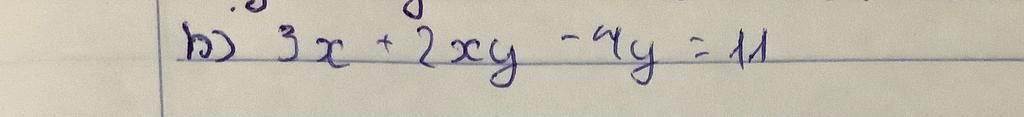 b) 3x + 2xy - 4y = 11